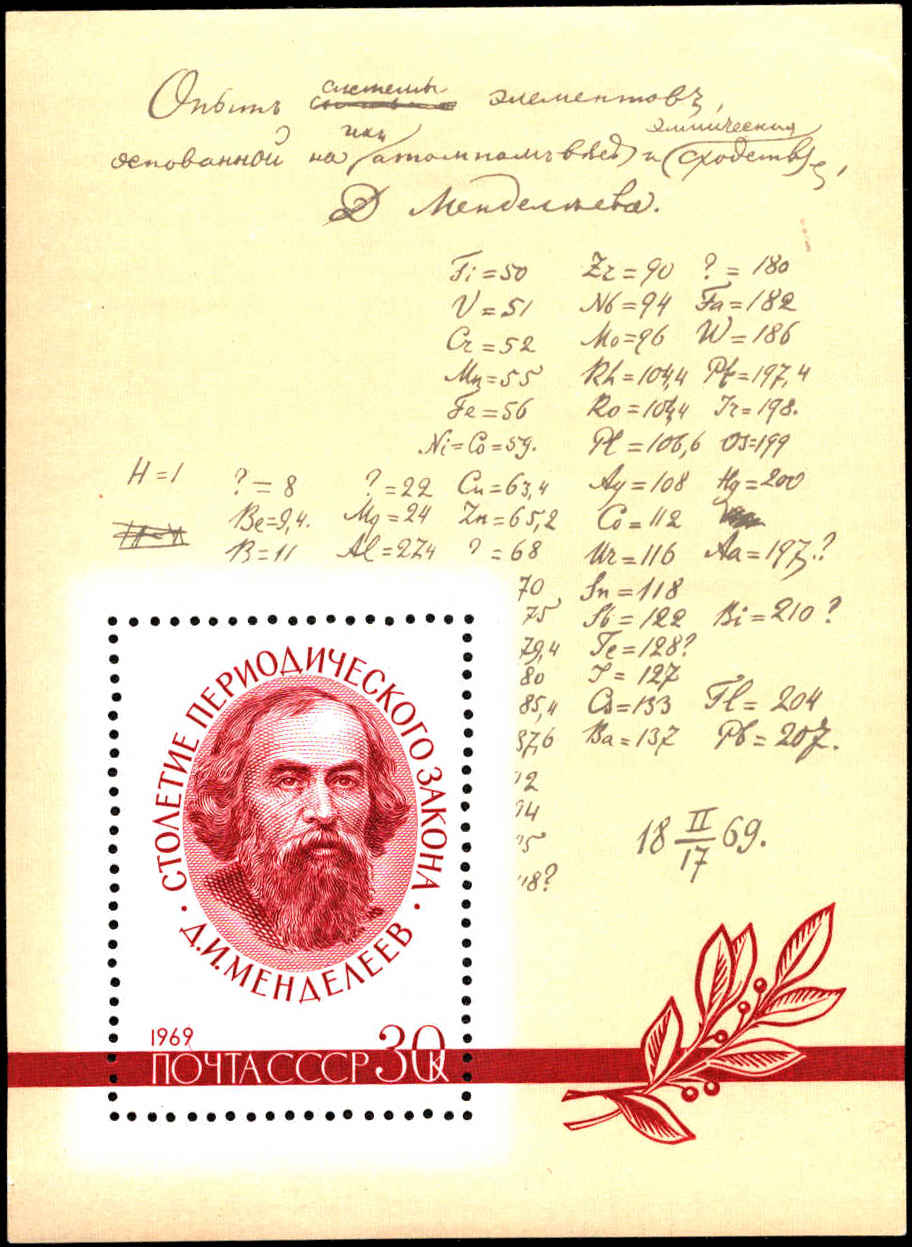 Опытъ системы элементовъ,
основанной на ихъ атомномъ вѣсѣ и химическ сходствѣ,
Д Менделѣева.
Ti = 50 Zr = 90 ? = 180
V = 51 Nb = 94 Ta = 182
Cr = 52 Mo = 96 W = 186
Mn = 55 Rh = 104,4 Pt = 197,4
Fe = 56 Ro = 104,4 Ir = 198.
Ni = Co = 59. Pl = 106,6 Os = 199
H = 1 ? = 8 ? = 22 Cu = 63,4 Ag = 108 Hg = 200
Be = 9,4. Mg = 24 Zn = 65,2 Cd = 112
B = 11 Al = 27,4 ? = 68 Ur = 116 Au = 197?
70 Sn = 118
75 Sb = 122 Bi = 210?
79,4 Te = 128?
80 J = 127
85,4 Cs = 133 Tl = 204
87,6 Ba = 137 Pb = 207.
92
94
95
118?
18 II/17 69.
СТОЛЕТИЕ ПЕРИОДИЧЕСКОГО ЗАКОНА
• Д.И.МЕНДЕЛЕЕВ •
1969
ПОЧТА СССР 30 К